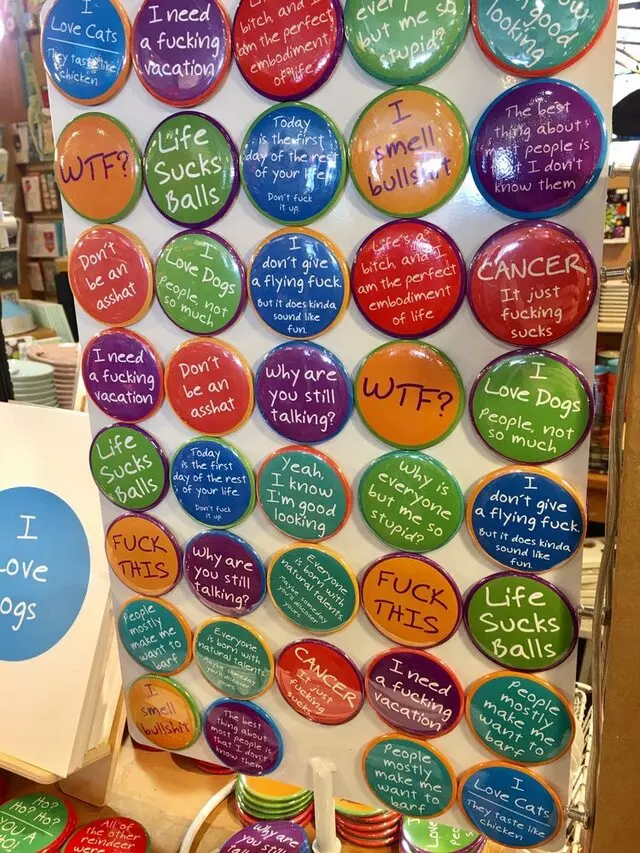 I
Love Cats
They taste like
chicken
I need
a fucking
vacation
bitch and I
am the perfect
embodiment
of life
every
but me so
stupid?
good
looking
WTF?
Life
Sucks
Balls
Today
is the first
day of the rest
of your life
Don't fuck
it up.
I
smell
bullshit
The best
thing about
most people is
that I don't
know them
Don't
be an
asshat
I
Love Dogs
People, not
so much
I
don't give
a flying fuck.
But it does kinda
sound like
fun.
Life's a
bitch and I
am the perfect
embodiment
of life
CANCER
It just
fucking
sucks
I need
a fucking
vacation
Don't
be an
asshat
Why are
you still
talking?
WTF?
I
Love Dogs
People, not
so much
Life
Sucks
Balls
Today
is the first
day of the rest
of your life.
Don't fuck
it up.
Yeah,
I know
I'm good
looking
Why is
everyone
but me so
stupid?
I
don't give
a flying fuck.
But it does kinda
sound like
fun.
FUCK
THIS
Why are
you still
talking?
Everyone
is born with
natural talents
Maybe someday
you'll discover
yours
FUCK
THIS
Life
Sucks
Balls
People
mostly
make me
want to
barf
Everyone
is born with
natural talents
Maybe someday
you'll discover
yours
CANCER
It just
fucking
sucks
I need
a fucking
vacation
People
mostly
make me
want to
barf
I
smell
bullshit
The best
thing about
most people is
that I don't
know them
People
mostly
make me
want to
barf
I
Love Cats
They taste like
chicken
I
Love
ogs
Ho?
Ho? Ho?
YOU A
HO!
All of the
other
reindeer
were
Why are
you still
I
Love